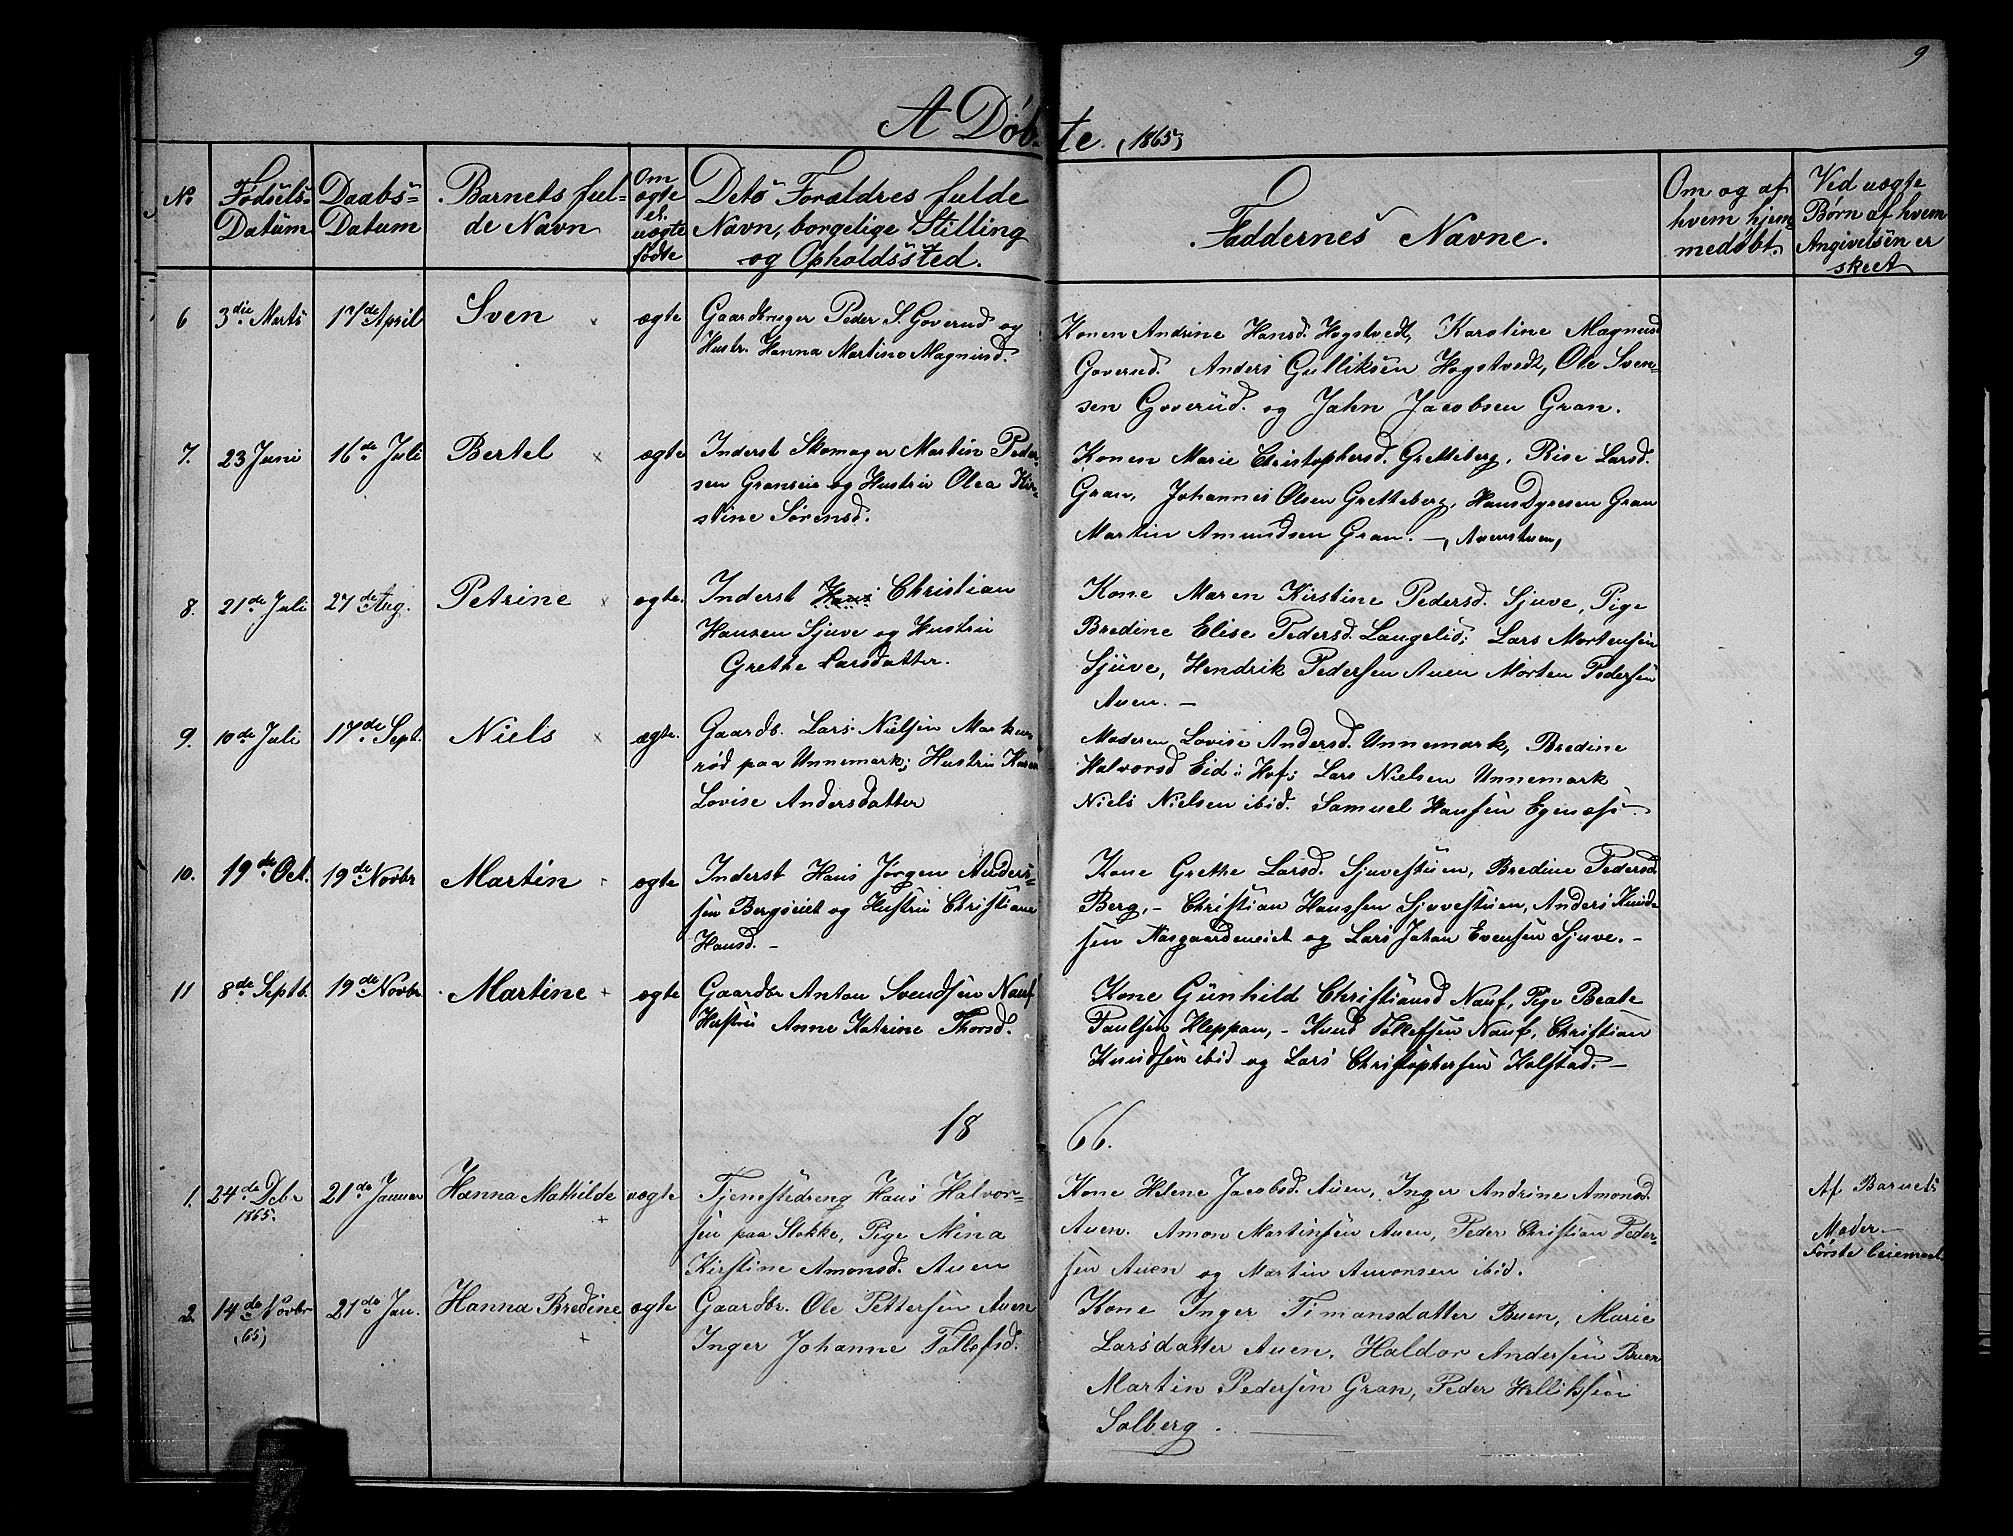 9
A Døbte. (1865)
No
Fødsels-Datum
Daabs-Datum
Barnets fulde Navn
Om ægte el. uægte fødte
Dets Forældres fulde Navn, borgelige Stilling og Opholdssted.
Faddernes Navne.
Om og af hvem hjemmedøbt.
Ved uægte Børn af hvem Angivelsen er skeet
6 3die Marts 17de April Sven ægte
Gaardbruger Peder S. Goverud og
Hustr. Hanna Martine Magnusd.
Konen Andrine Hansd. Hogstvedt, Karoline Magnusd
Goverud. Anders Gulliksen Hogstvedt, Ole Sven-
sen Goverud. og Jahn Jacobsen Gran.
7. 23 Juni 16de Juli Bertel ægte
Inderst Skomager Martin Peder-
sen Graneie og Hustru Olea Kir-
stine Sørensd.
Konen Marie Christophersd. Gretteberg, Pige Larsd.
Gran, Johannes Olsen Gretteberg, Hans Dyresen Gran
Martin Amundsen Gran. —
8. 21de Juli 27de Aug. Petrine ægte.
Inderst Hans Christian
Hansen Sjuve og Hustru
Grethe Larsdatter.
Kone Maren Kirstine Pedersd. Sjuve, Pige
Bredine Elise Pedersd. Langelid; Lars Mortensen
Sjuve, Hendrik Pedersen Auen Morten Pedersen
Auen. —
9. 10de Juli 17de Sept. Niels ægte.
Gaardb. Lars Nielsen
rød paa Unnemark; Hustru Karen
Lovise Andersdatter
Moderen Lovise Andersd. Unnemark, Bredine
Halvorsd Eid i Hof; Lars Nielsen Unnemark
Niels Nielsen ibid. Samuel Hansen Egenæs. —
10. 19de Oct. 19de Novbr Martin ægte
Inderst Hans Jørgen Anders-
sen Bergseiet og Hustru Christiane
Hansd. —
Kone Grethe Larsd. Sjuvestuen, Bredine Pedersd.
Berg, - Christian Hanssen Sjuvestuen, Anders Knud-
sen Aasgaardeneiet og Lars Johan Evensen Sjuve. —
11 8de Septb. 19de Novbr Martine ægte
Gaardbr Anton Svendsen Nauf
Hustru Anne Katrine Thorsd.
Kone Gunhild Christiansd Nauf, Pige Beate
Paulsen Kleppan, - Knud Tollefsen Nauf, Christian
Knudsen ibid og Lars Christophersen Kolstad. —
1866.
1. 24de Debr 1865. 21de Januar Hanna Mathilde uægte
Tjenestedreng Hans Halvor-
sen paa Stokke, Pige Mina
Kirstine Amonsd. Auen
Kone Helene Jacobsd. Auen, Inger Andrine Amonsd.
Auen. Amon Martinsen Auen, Peder Christian Peder-
sen Auen og Martin Amonsen ibid.
Af Barnets
Moder
Første Leiermaal
2. 14de Novbr (65) 21de Jan. Hanna Bredine ægte
Gaardbr. Ole Pettersen Auen
Inger Johanne Tollefsd.
Kone Inger Timansdatter Buen, Marie
Larsdatter Auen, Haldor Andersen Buen
Martin Pedersen Gran, Peder
Solberg.